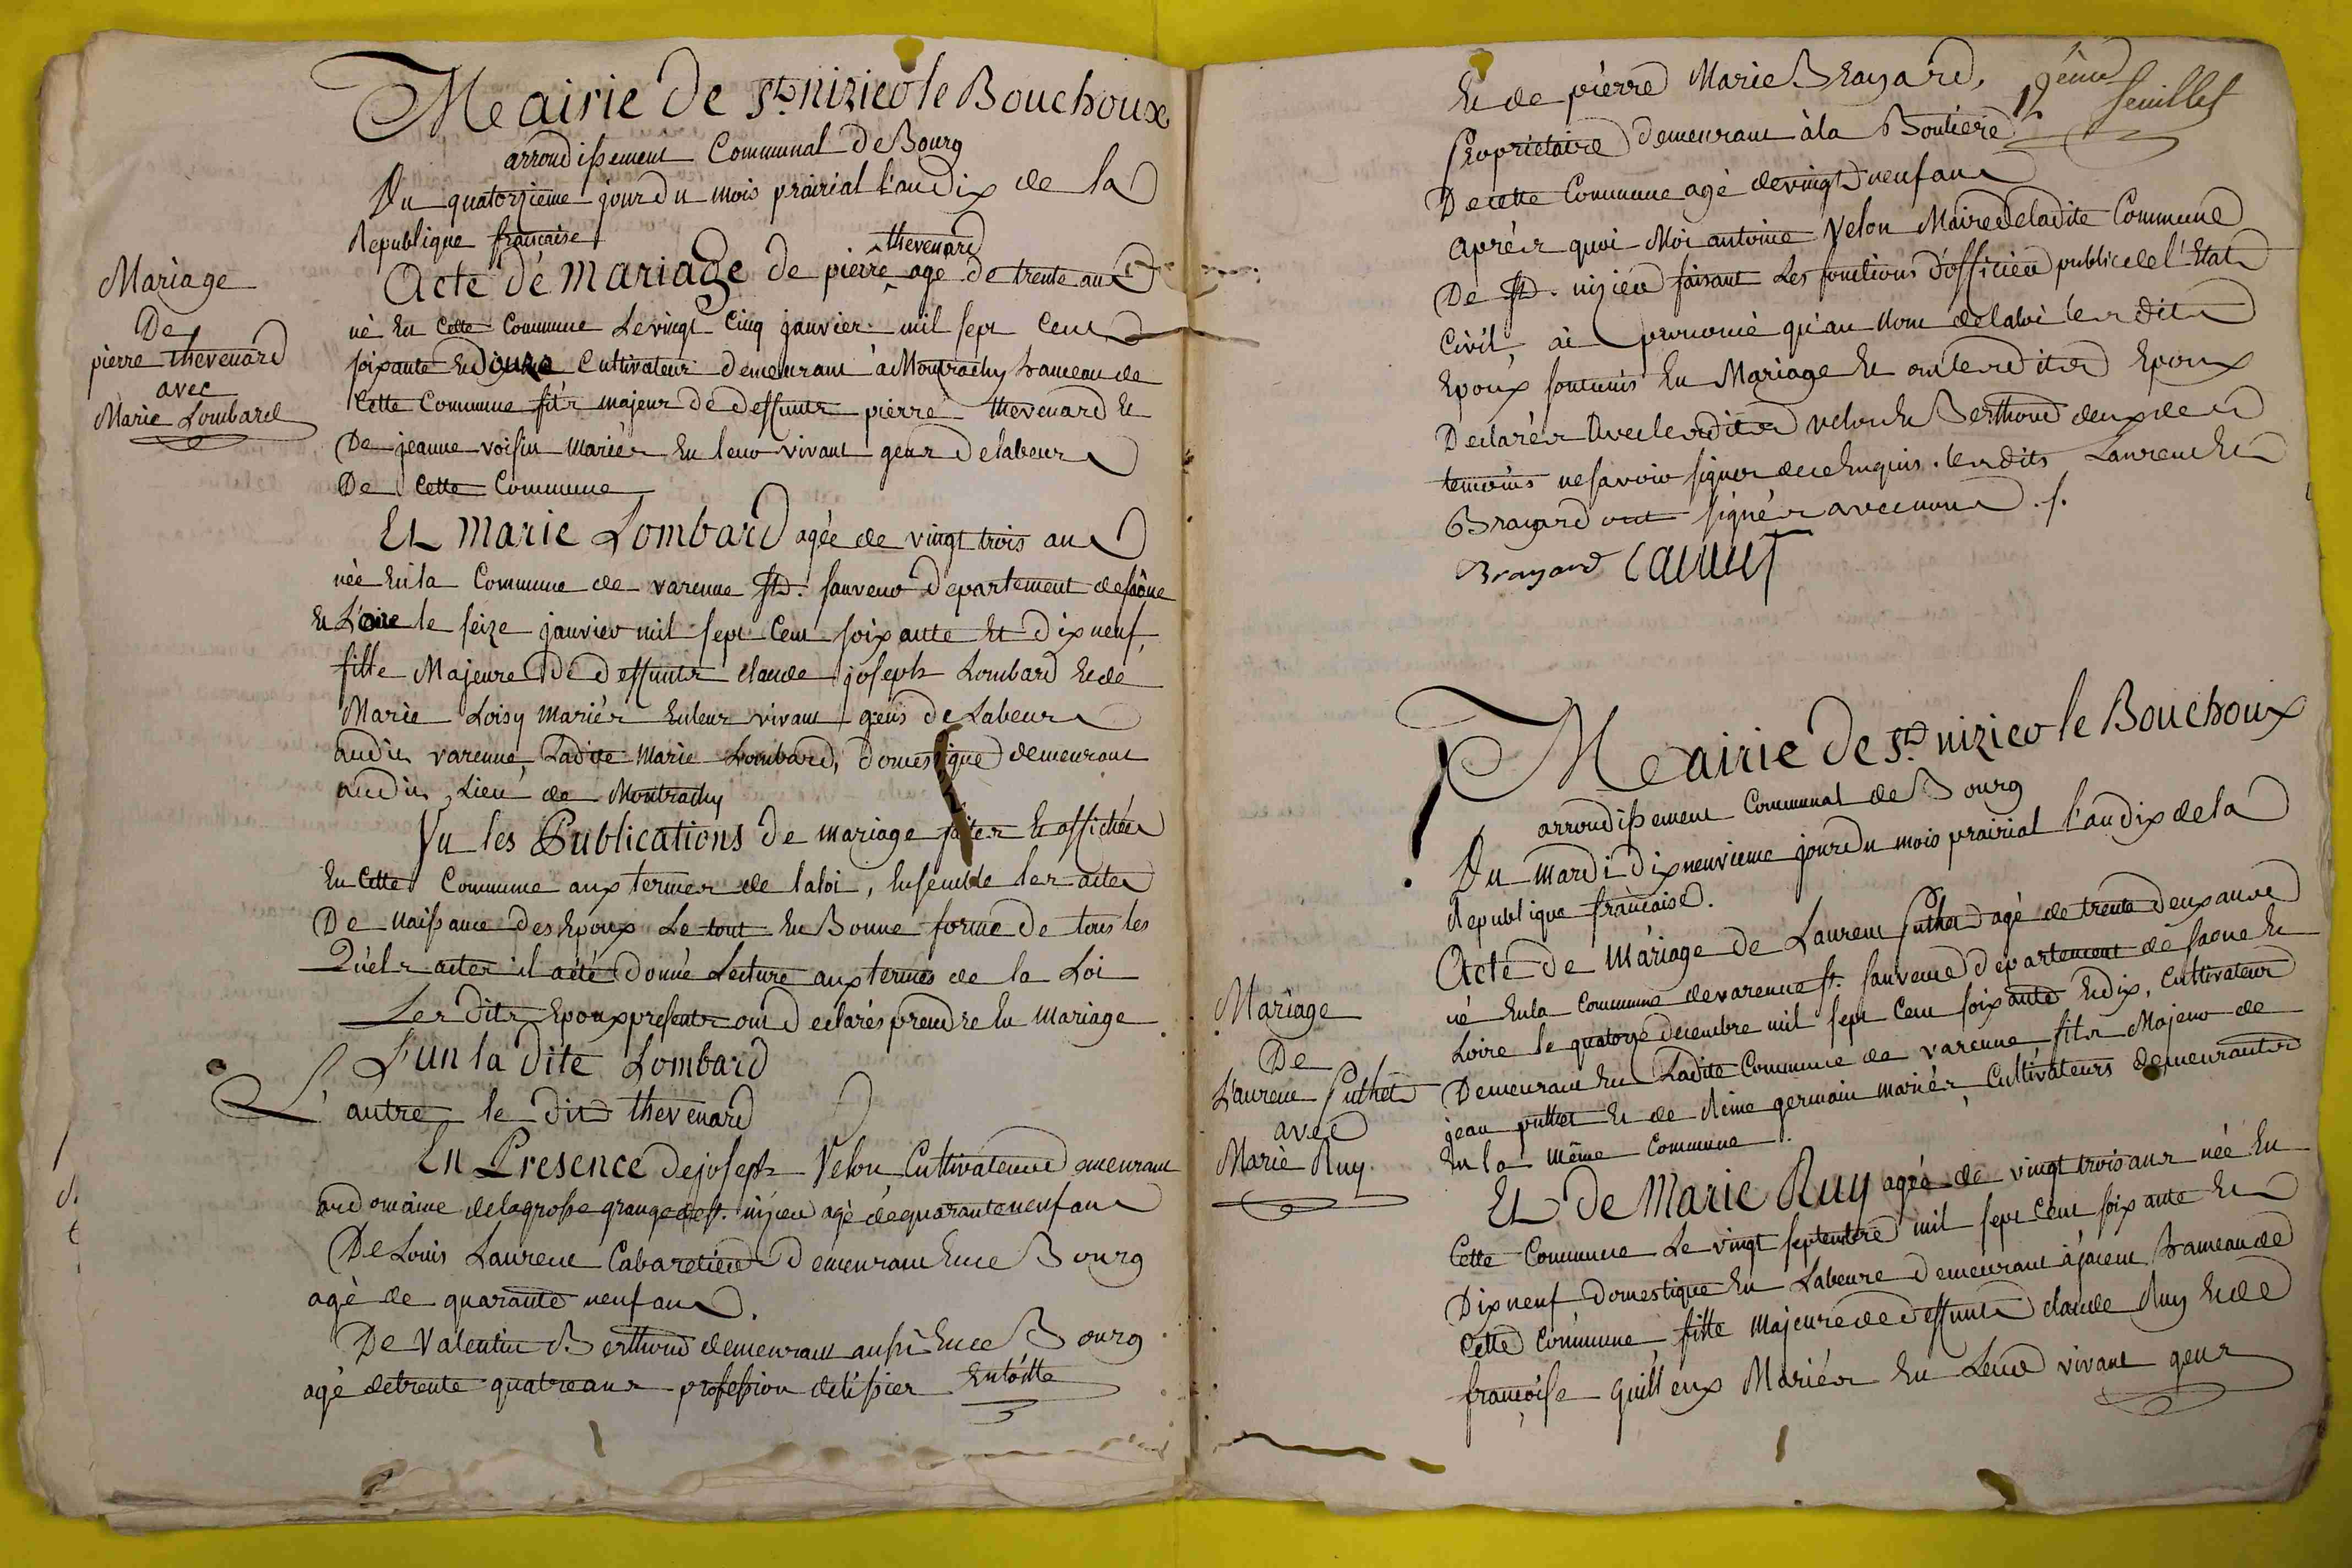 Mairie de St nizier le Bouchoux
arrondissement Communal de Bourg
Du quatorzieme jour du mois prairial l'an dix de la
Republique francaise
Mariage
De
pierre thevenard
avec
Marie Lombard
thevenard
Acte de mariage de pierre agé de trente ans
né En Cette Commune Le vingt Cinq janvier mil sept Cent
soixante Et douze Cultivateur demeurant à Montrachy hameau de
Cette Commune fils majeur de deffunts pierre thevenard Et
De jeanne voisin mariés En leur vivant gens de labeur
De Cette Commune
Et Marie Lombard agée de vingt trois ans
née En la Commune de varenne St. sauveur Departement de saône
Et Loire le seize janvier mil sept Cent soixante Et dix neuf
fille Majeure De deffunts claude joseph Lombard Et de
Marie Loisy mariés En leur vivant gens de Labeur
audit varenne, Ladite Marie Lombard, domestique demeurant
audit Lieu de Montrachy
Vu les Publications de mariage faites Et affichées
En Cette Commune aux termes de la loi, Ensemble les actes
De naissance des Epoux Le tout En Bonne forme De tous les
Quels actes il a été Donné Lecture aux termes de la Loi
Les dits Epoux presents ont declarés prendre En mariage
L'un la dite Lombard
L'autre le dit thevenard
En Presence de joseph Velon Cultivateur demeurant
au domaine de la grosse grange de st. nizier agé de quarante neuf ans
De Louis Laurent Cabaretier Demeurant En ce Bourg
agé de quarante neuf ans.
De Valentin Berthoud demeurant aussi En ce Bourg
agé de trente quatre ans profession de tissier En toille
12ème feuillet
Et de pierre Marie Brayard,
Proprietaire demeurant à la Boutiere
De cette Commune agé de vingt neuf ans
Aprés quoi Moi antoine Velon Maire de ladite Commune
De St. nizier faisant Les fonctions d'officier public de l'Etat
Civil, ai prononcé qu'au Nom de la loi les dits
Epoux sont unis En Mariage Et ont les dits Epoux
Declarés avec les dits velon Et Berthoud deux des
temoins ne savoir signer de ce Enquis. les dits Laurent Et
Brayard ont signés avec nous .f.
Brayard Laurent
Mairie de St nizier le Bouchoux
arrondissement Communal de Bourg
Du mardi Dix neuvieme jour du mois prairial l'an dix de la
Republique francaise.
Mariage
De
Laurent Puthet
avec
Marie Ruy
Acte de mariage de Laurent Puthet agé de trente deux ans
né En la Commune de varenne st. sauveur departement de saone Et
Loire le quatorze decembre mil sept Cent soixante Et dix, Cultivateur
Demeurant En Ladite Commune de varenne fils Majeur de
jean puthet Et de Reine germain mariés Cultivateurs demeurants
En la même Commune.
Et de Marie Ruy agée de vingt trois ans née En
Cette Commune Le vingt septembre mil sept Cent soixante Et
Dix neuf Domestique En Labeure demeurant à jacent hameau de
Cette Commune, fille majeure de deffunts claude Ruy Et de
françoise guilleux Mariés En Leur vivant gens